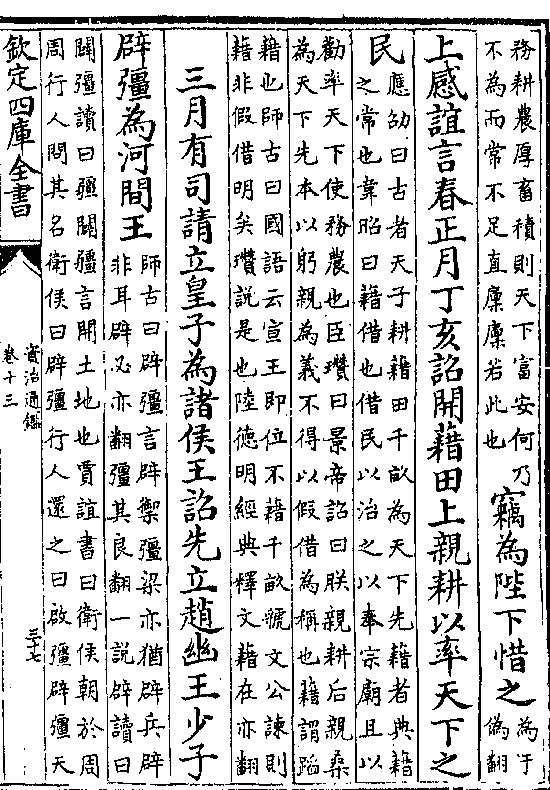 務耕農厚畜積則天下富安何乃
不為而常不足直廩廩若此也
竊為陛下惜之
為于
偽翻
上感誼言春正月丁亥詔開藉田上親耕以率天下之
民
應劭曰古者天子耕藉田千畝為天下先藉者典藉
之常也韋昭曰藉借也借民以治之以奉宗廟且以
勸率天下使務農也臣瓚曰景帝詔曰朕親耕后親桑
為天下先本以躬親為義不得以假借為稱也藉謂蹈
藉也師古曰國語云宣王即位不藉千畝虢文公諫則
藉非假借明矣瓚說是也陸德明經典釋文藉在亦翻
三月有司請立皇子為諸侯王詔先立趙幽王少子
辟彊為河間王
師古曰辟彊言辟禦彊梁亦猶辟兵辟
非耳辟必亦翻彊其良翻一說辟讀曰
闢彊讀曰疆闢疆言開土地也賈誼書曰衛侯朝於周
周行人問其名衛侯曰辟彊行人還之曰啟彊辟彊天
欽定四庫全書
資治通鑑
卷十三
三十七